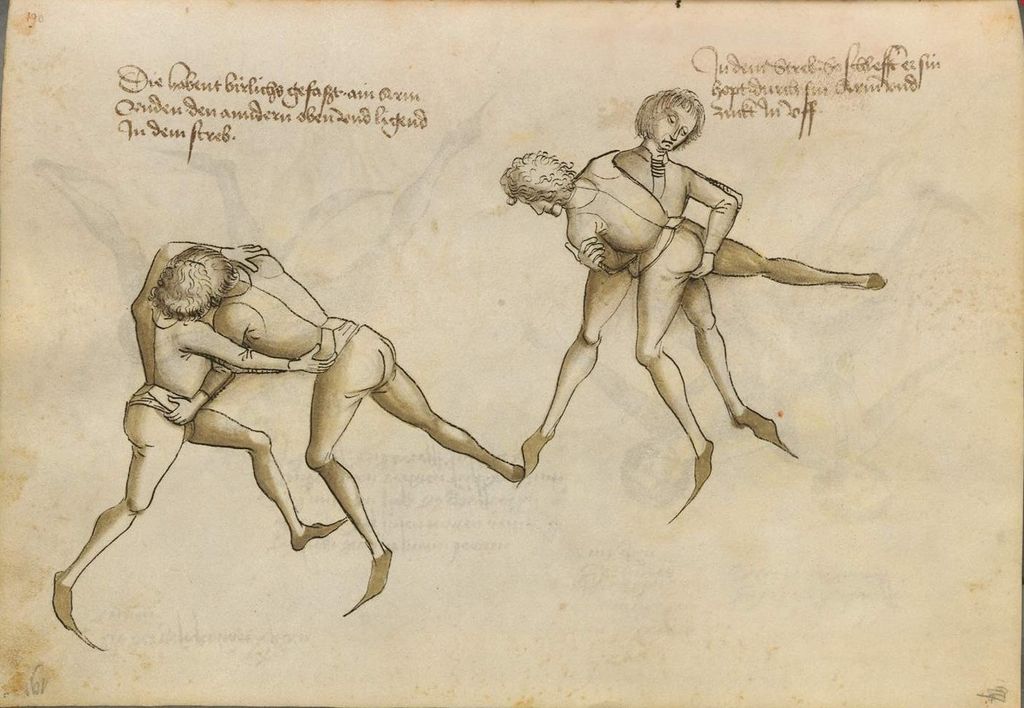 190
Die habent birlichs gefaszt ain arm
Onden den anndern oben vnd ligend
In dem streb.
In dem Streb so schlefft er sin
hopt durch sin Arm vnd
zuckt In vff